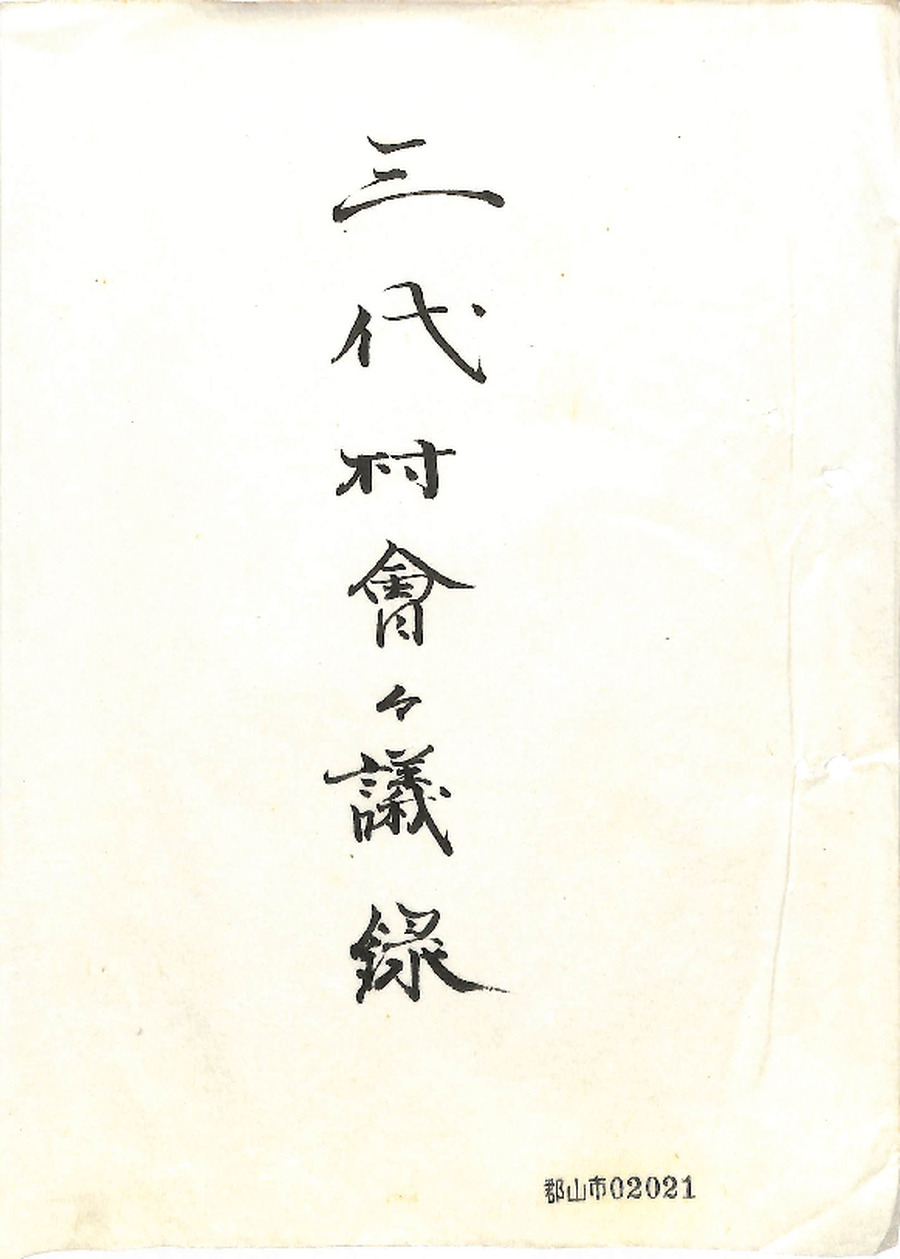 三代村會々議録
郡山市02021